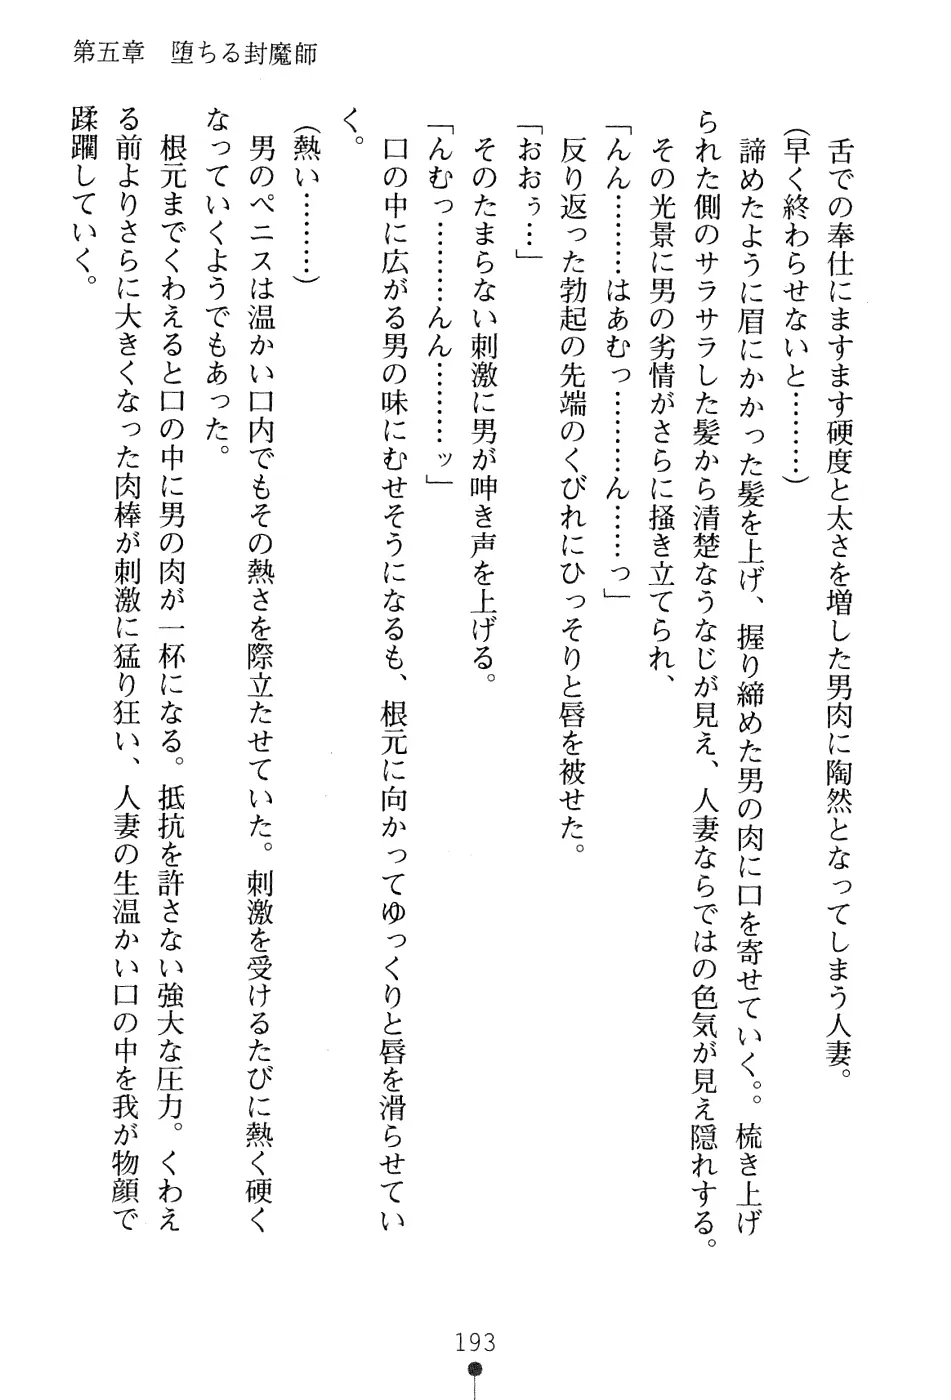 第五章　堕ちる封魔師
舌での奉仕にますます硬度と太さを増した男肉に陶然となってしまう人妻。
（早く終わらせないと………）
諦めたように眉にかかった髪を上げ、握り締めた男の肉に口を寄せていく。。梳き上げ
られた側のサラサラした髪から清楚なうなじが見え、人妻ならではの色気が見え隠れする。
その光景に男の劣情がさらに掻き立てられ、
「んん………はあむっ…………ん……っ」
反り返った勃起の先端のくびれにひっそりと唇を被せた。
「おおぅ…」
そのたまらない刺激に男が呻き声を上げる。
「んむっ…………んん…………ッ」
口の中に広がる男の味にむせそうになるも、根元に向かってゆっくりと唇を滑らせてい
く。
（熱い………）
男のペニスは温かい口内でもその熱さを際立たせていた。刺激を受けるたびに熱く硬く
なっていくようでもあった。
根元までくわえると口の中に男の肉が一杯になる。抵抗を許さない強大な圧力。くわえ
る前よりさらに大きくなった肉棒が刺激に猛り狂い、人妻の生温かい口の中を我が物顔で
蹂躙していく。
193